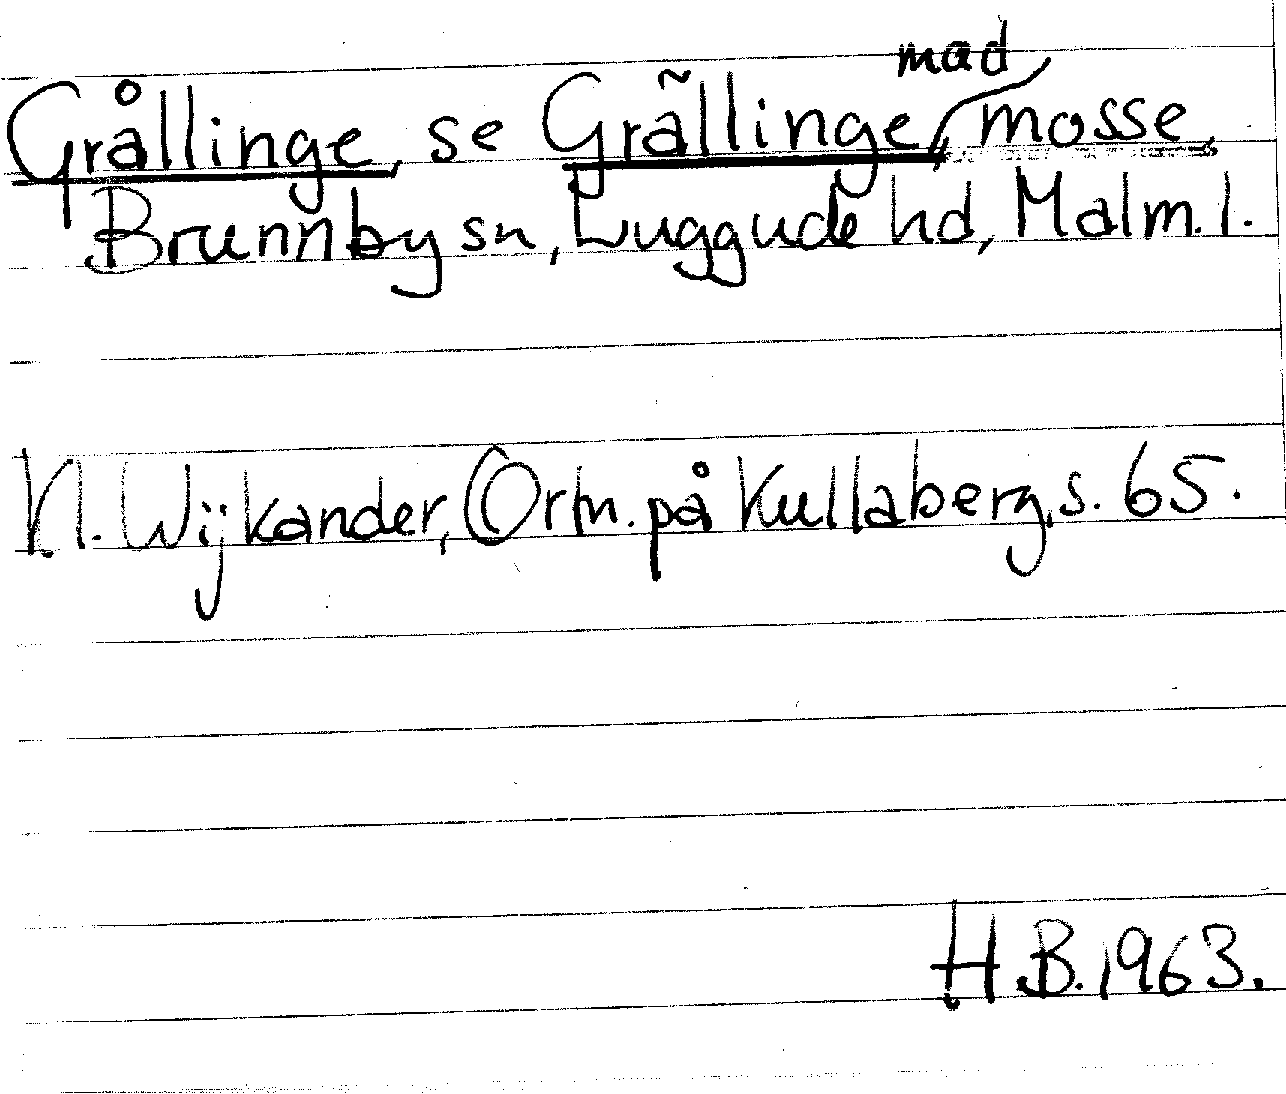 mad
Grållinge, se Grãllinge mosse,
Brunnby sn, Luggude hd, Malm. l.
N. Wijkander, Ortn. på Kullaberg, s. 65.
H.B. 1963.